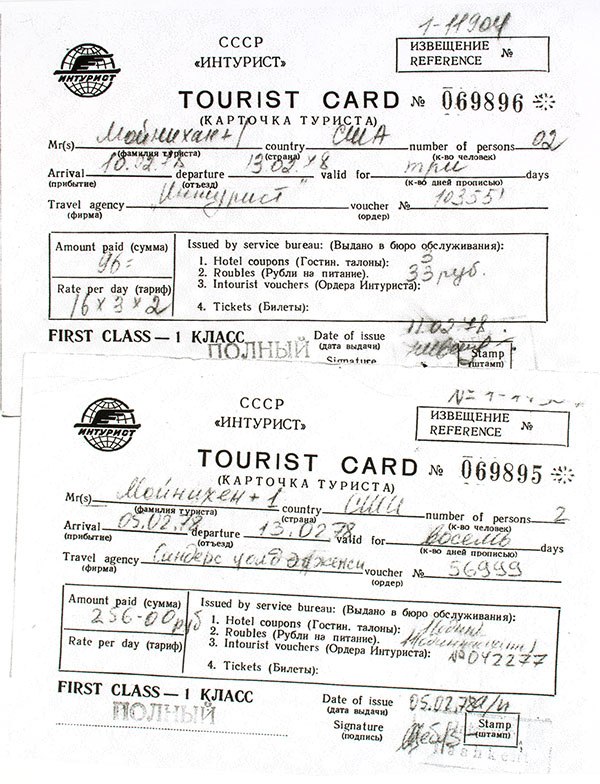 1-11904
СССР
«ИНТУРИСТ»
ИЗВЕЩЕНИЕ №
REFERENCE
ИНТУРИСТ
TOURIST CARD № 069896
(КАРТОЧКА ТУРИСТА)
Mr(s) Мойнихан+1 country США number of persons 02
(фамилия туриста) (страна) (к-во человек)
Arrival 10.02.78 departure 13 02.78 valid for три days
(прибытие) (отъезд) (к-во дней прописью)
Travel agency "Интурист" voucher № 10355
(фирма) (ордер)
Amount paid (сумма)
96=
Rate per day (тариф)
16 x 3 x 2
Issued by service bureau: (Выдано в бюро обслуживания):
1. Hotel coupons (Гостин. талоны): 3
2. Roubles (Рубли на питание). 33 руб.
3. Intourist vouchers (Ордера Интуриста):
4. Tickets (Билеты):
FIRST CLASS — 1 КЛАСС
ПОЛНЫЙ
Date of issue 11.02.78.
(дата выдачи)
Signature
Stamp
(штамп)
СССР
«ИНТУРИСТ»
ИЗВЕЩЕНИЕ №
REFERENCE
ИНТУРИСТ
TOURIST CARD № 069895
(КАРТОЧКА ТУРИСТА)
Mr(s) Мойнихен+1 country США number of persons 2
(фамилия туриста) (страна) (к-во человек)
Arrival 05.02.78 departure 13.02.78 valid for восемь days
(прибытие) (отъезд) (к-во дней прописью)
Travel agency voucher № 56999
(фирма) (ордер)
Amount paid (сумма)
256-00 руб
Rate per day (тариф)
Issued by service bureau: (Выдано в бюро обслуживания):
1. Hotel coupons (Гостин. талоны):
2. Roubles (Рубли на питание).
3. Intourist vouchers (Ордера Интуриста): №042277
4. Tickets (Билеты):
FIRST CLASS — 1 КЛАСС
ПОЛНЫЙ
Date of issue 05.02.78
(дата выдачи)
Signature
(подпись)
Stamp
(штамп)